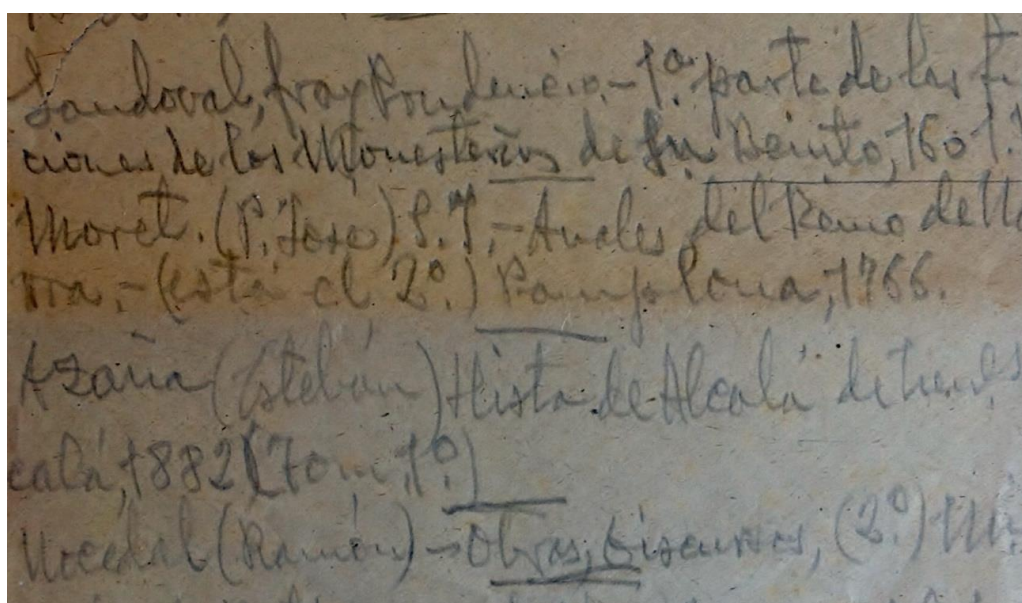 Sandoval, fray Prudencio.-1ª. parte de las fu
ciones de los Monesterios de Sn Benito, 1601.
Moret. (P. Jose) S.J.,- Anales del Reino de Na
rra,- (está el 2º.) Pamplona, 1766.
Azaña (Esteban) Hista de Alcalá de hen
calá, 1882 (Tom, 1º.)
Nocedal (Ramón) - Obras, Discursos, (2º)